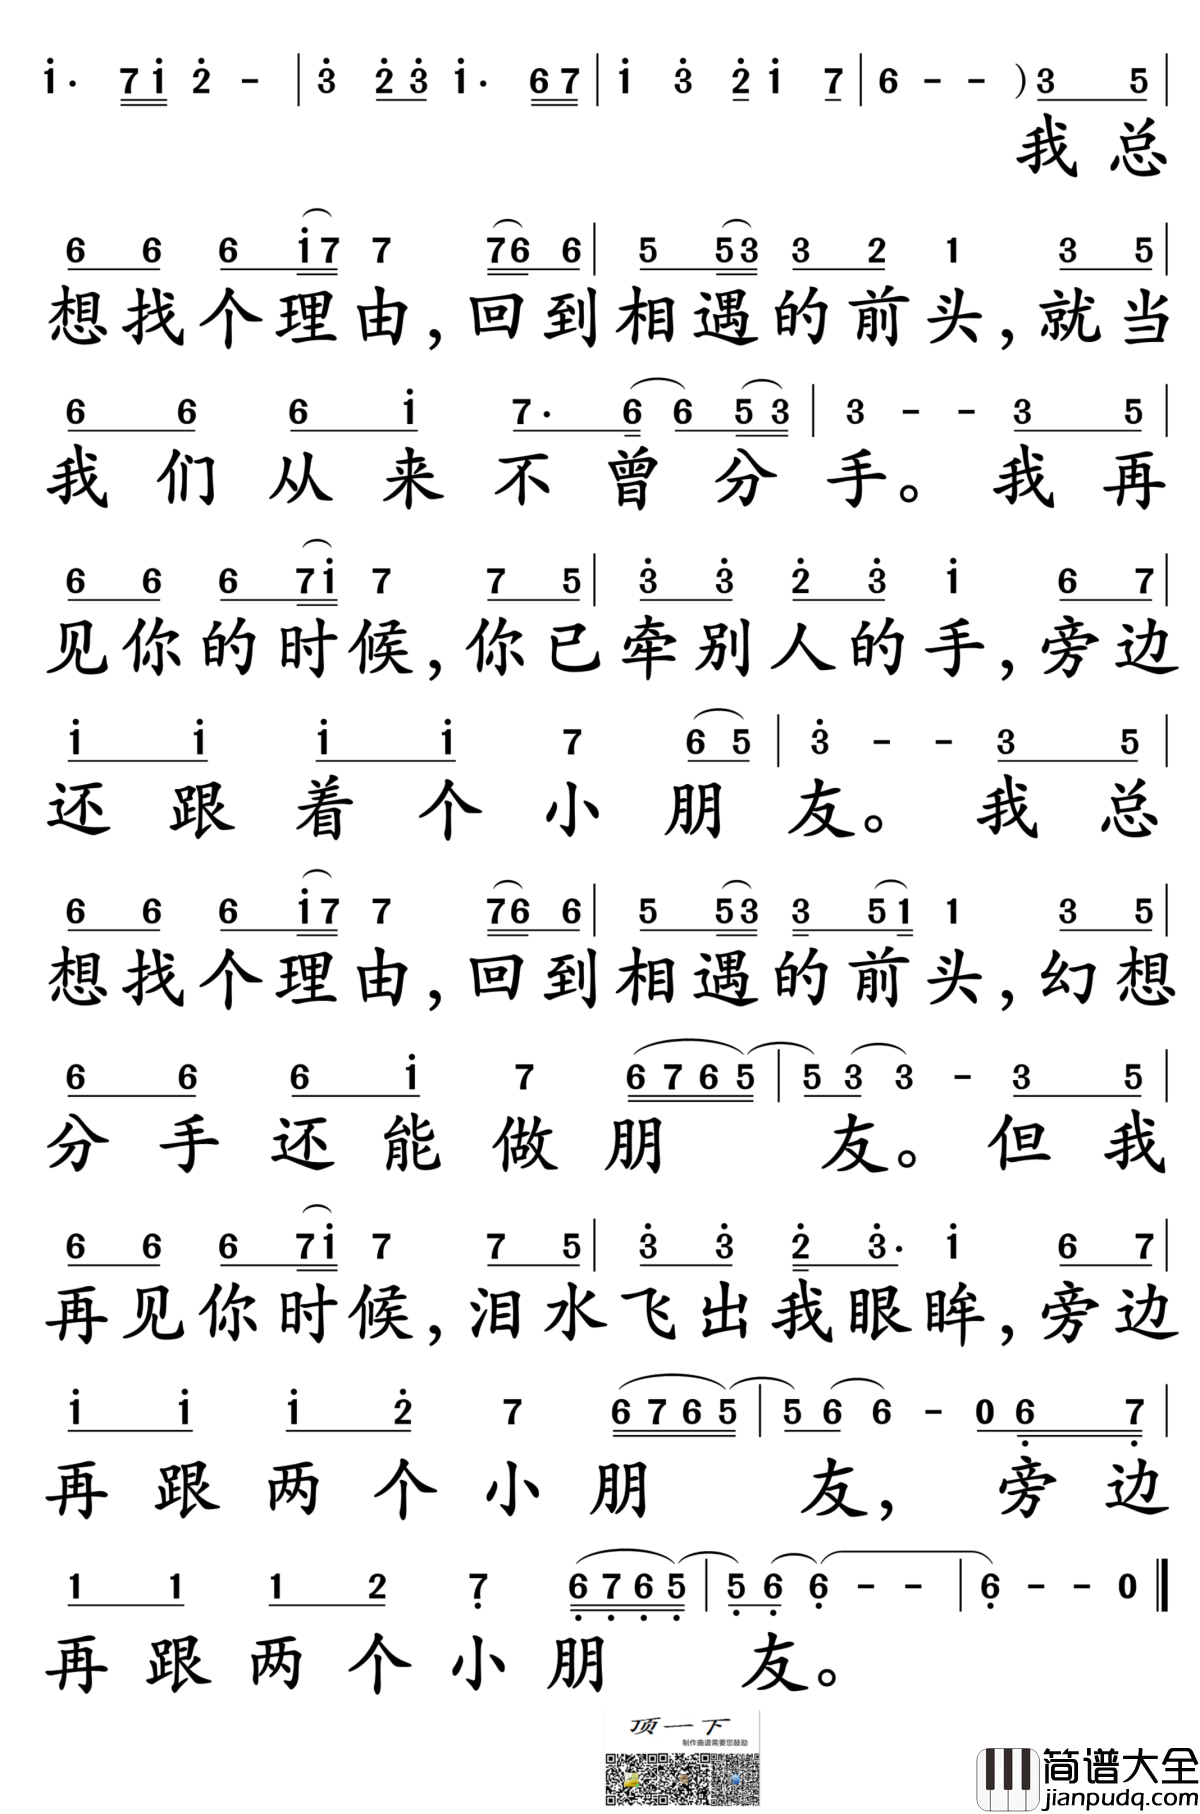 1· 7 1 2 - | 3 2 3 1· 6 7 | 1 3 2 1 7 | 6 - - ) 3 5 |
我总
6 6 6 1 7 7 7 6 6 | 5 5 3 3 2 1 3 5 |
想找个理由，回到相遇的前头，就当
6 6 6 1 7· 6 6 5 3 | 3 - - 3 5 |
我们从来不曾分手。我再
6 6 6 7 1 7 7 5 | 3 3 2 3 1 6 7 |
见你的时候，你已牵别人的手，旁边
1 1 1 1 7 6 5 | 3 - - 3 5 |
还跟着个小朋友。我总
6 6 6 1 7 7 7 6 6 | 5 5 3 3 5 1 1 3 5 |
想找个理由，回到相遇的前头，幻想
6 6 6 1 7 6 7 6 5 | 5 3 3 - 3 5 |
分手还能做朋友。但我
6 6 6 7 1 7 7 5 | 3 3 2 3· 1 6 7 |
再见你时候，泪水飞出我眼眸，旁边
1 1 1 2 7 6 7 6 5 | 5 6 6 - 0 6 7 |
再跟两个小朋友，旁边
1 1 1 2 7 6 7 6 5 | 5 6 6 - - | 6 - - 0 ‖
再跟两个小朋友。
顶一下
制作曲谱需要您鼓励
简谱大全
jianpudq.com